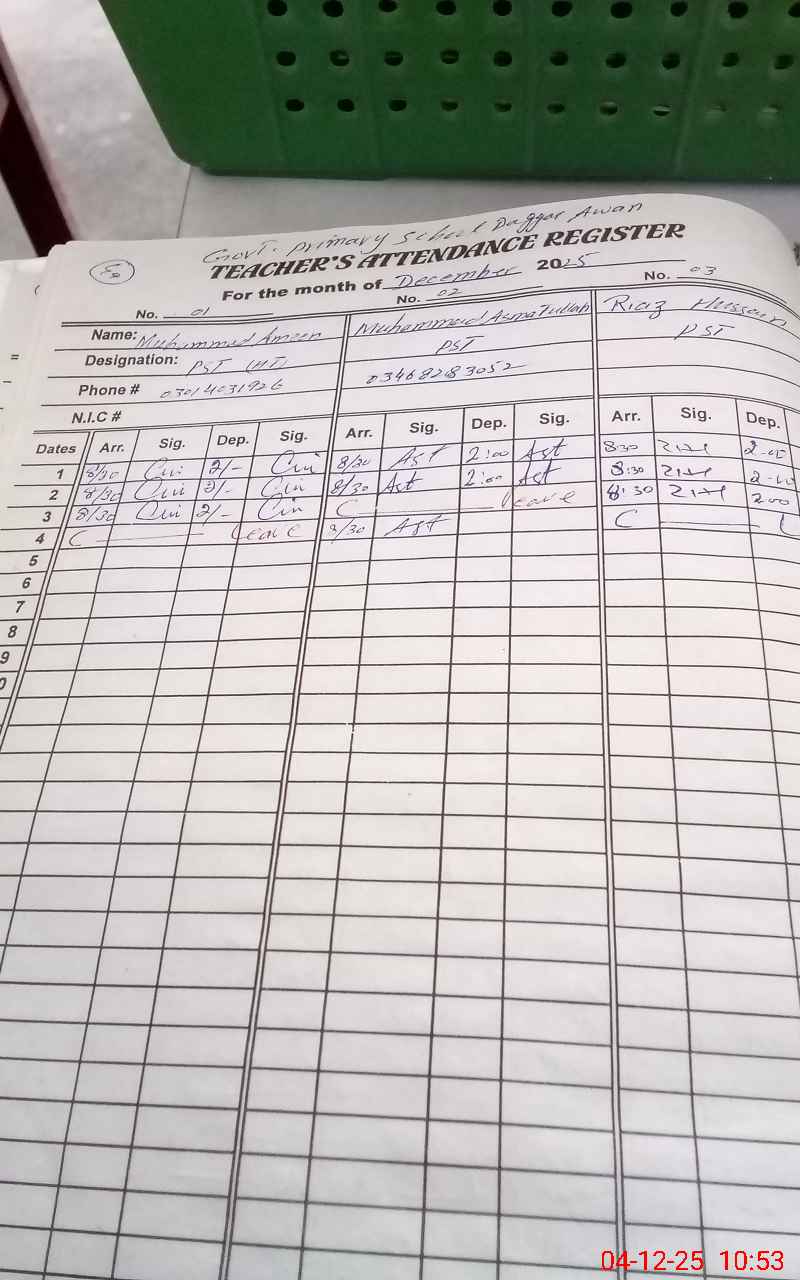 Govt. Primary School Daggar Awan
TEACHER'S ATTENDANCE REGISTER
For the month of December 2025
No. 01 No. 02 No. 03
Name: Muhammad Ameen Muhammad Asmatullah Riaz Hussain
Designation: PST (HT) PST PST
Phone # 03014031926 03468283052
N.I.C #
Dates Arr. Sig. Dep. Sig. Arr. Sig. Dep. Sig. Arr. Sig. Dep.
1 8/30 2/- 8/30 Ast 2:00 Ast 8:30 2-00
2 8/30 2/- 8/30 Ast 2:00 Ast 8:30 2-00
3 8/30 2/- C Leave 8:30 2:00
4 C Leave 8/30 Ast C L
5
6
7
8
9
0
04-12-25 10:53